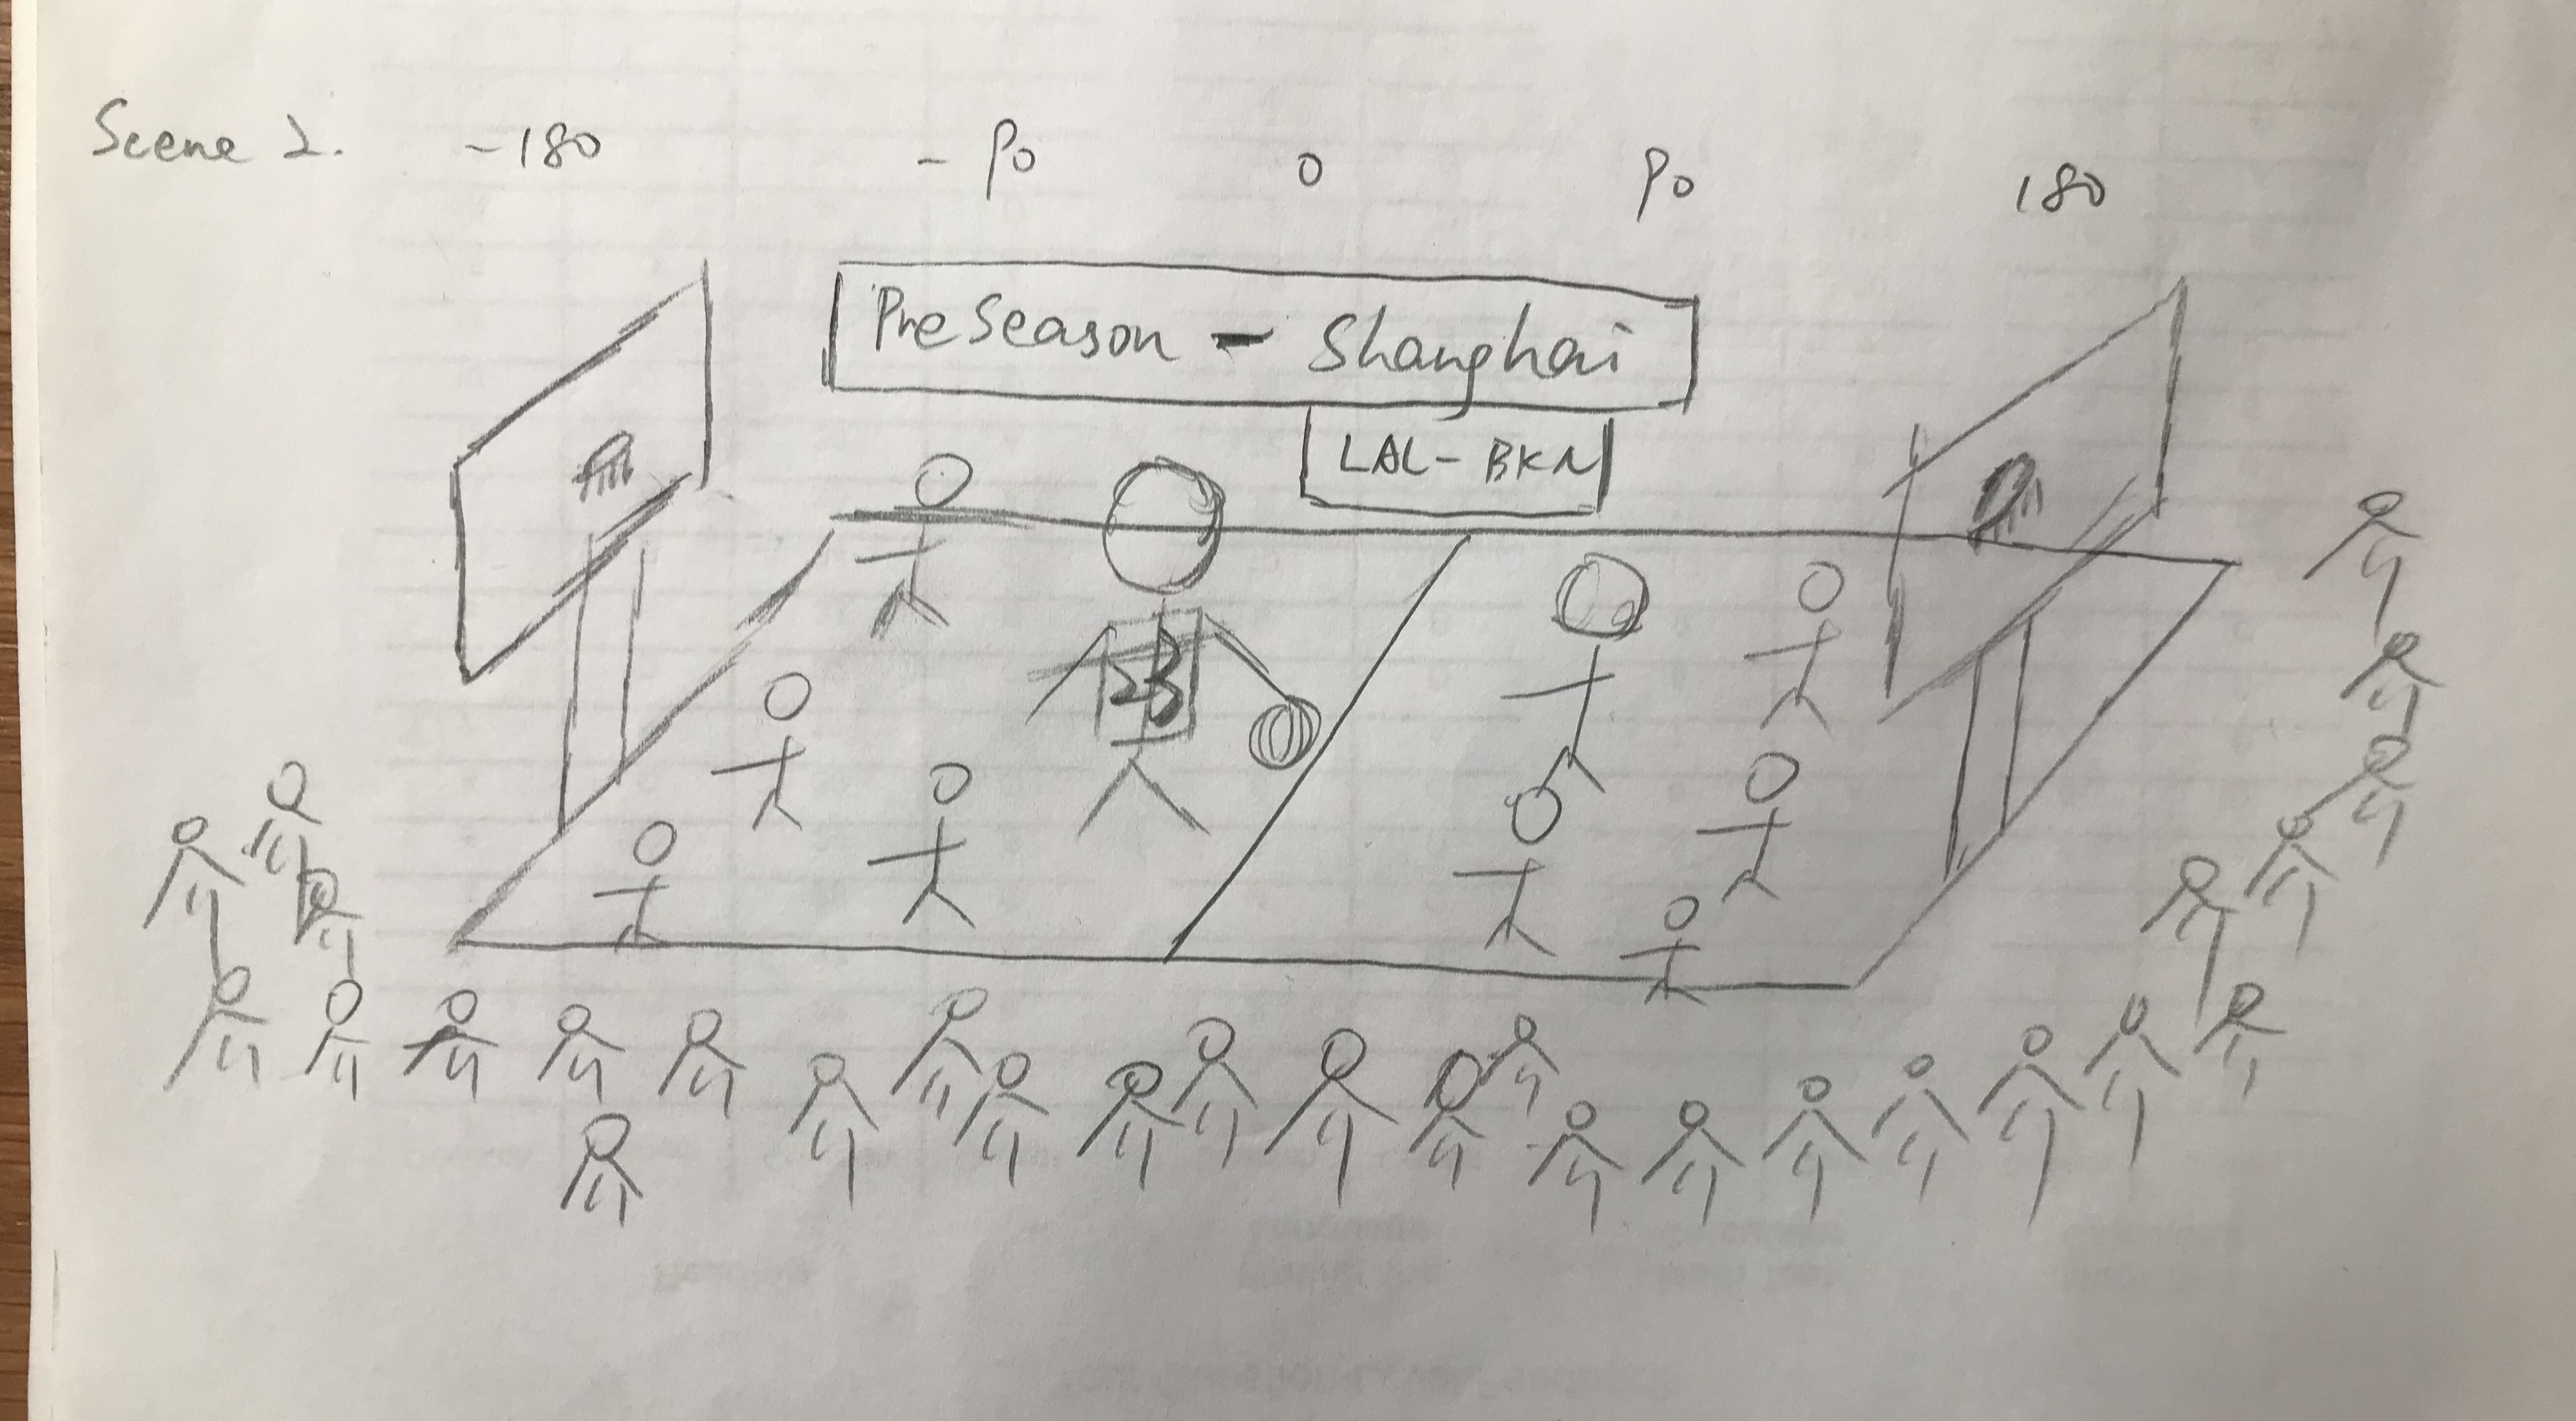 Scene 2. -180 -90 0 90 180
PreSeason - Shanghai
LAL-BKN
23